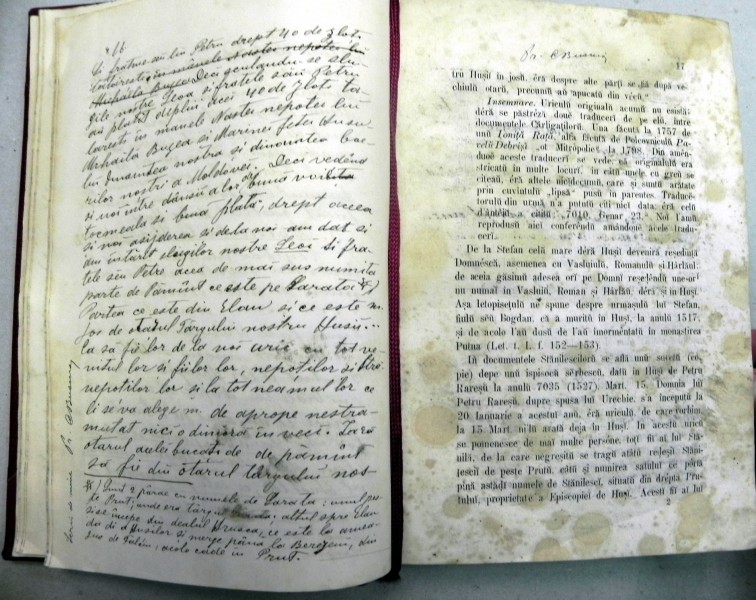 16
Și fratele său lui Petru drept 40 de zloți
tătărești în mânele Nastei nepotei lui
Mihăilă Buzea Deci sculându-se slu-
gile nóstre Leca și fratele său Petru
au plătit deplin acei 40 de zloți tă-
tărești în manele Nastei nepotei lui
Mihăilă Buzea și Marinei fetei
lui dinaintea nostră și dinaintea boe-
rilor nostri a Moldovei. Deci vedênd
si noi intre dânsii a lor buna
tocmeala si bună plată, drept aceea
si noi asijderea si de la noi am dat si
am intărit slugilor nostre Leca si fra-
telui seu Petre acea de mai sus numita
parte de Pămint ce este pe Sarata *)
Partea ce este din Elan si ce este m.
jos de statul Târgului nostru Husii..
ca să fie lor de la noi uric cu tot ve-
nitul lor si fiilor lor, nepotilor si
nepotilor lor si la tot neamul lor ce
li se va alege m. de aprope nestră-
mutat nici o dinioră în veci. Iară
otarul acelei bucati de de pamînt
să fie din otarul târgului nos-
*) Sunt 2 părae cu numele de Sarata; unul pe
de Prut, unde era târgul altul spre Elan
si se incepe din dealul ce este la amea-
du di a Husilor si merge până la Berezeni, din
jus de Fălciu; acolo cade in Prut.
Pr. C Bursuc
17
trŭ Hușĭ în josŭ, éră despre alte părțĭ se fiă după ve-
chiulŭ otarŭ, precumŭ aŭ apucatŭ din vécŭ."
Insemnare. Uriculŭ originalŭ acumŭ nu esistă:
déră se păstréză doŭe traducerĭ de pe elŭ, intre
documentele Cârligațilorŭ. Una făcută la 1757 de
unŭ Ioniță Rață, altă făcută de Polcovniculŭ Pa-
velŭ Debriță „ot Mitropolie" la 1798. Din amên-
doŭe aceste traducerĭ se vede că originalulŭ era
stricatŭ in multe locurĭ, in câtŭ unele cu greŭ se
citéŭ, éră altele nicidecumŭ, care și suntŭ arătate
prin cuvîntulŭ „lipsă" pusŭ in parentes. Traducĕ-
torulŭ din urmă n'a pututŭ citi nicĭ data: éră celŭ
d'ântêiŭ a cititŭ: „7040, Genar 23." Noĭ l'amŭ
reprodusŭ aicĭ conferindŭ amândoŭe acele tradu-
cerĭ.
De la Stefan celŭ mare déră Hușĭ devenira reședința
Domnéscă, asemenea cu Vasluiulŭ, Romanulŭ și Hârlăul.
de aceia găsimŭ adesea orĭ pe Domnĭ reședêndŭ une-orĭ
nu numaĭ in Vasluiŭ, Roman și Hârlăŭ, déră și in Hușĭ.
Așa letopisețulŭ ne spune despre urmașulŭ luĭ Stefan,
fiulŭ sĕŭ Bogdan, că a muritŭ in Hușĭ, la anulŭ 1517,
și de acolo l'aŭ dusŭ de l'aŭ inormêntatŭ in monastirea
Putna (Let. t. I. f. 152—153).
In documentele Stănilescilorŭ se află unŭ suretŭ (co-
pie) depe unŭ ispisocŭ sêrbescŭ, datŭ in Hușĭ de Petru
Rareșŭ la anulŭ 7035 (1527) Mart. 15. Domnia luĭ
Petru Rareșŭ, dupre spusa luĭ Urechie, s'a inceputŭ la
20 Ianuarie a acestuĭ anŭ, éră uriculŭ, de care vorbim,
la 15 Mart. nĭ'lŭ arată deja in Hușĭ. In acestŭ uricŭ
se pomenesce de maĭ multe persone, toțĭ fiĭ aĭ luĭ Stă-
nilă, de la care negreșitŭ se tragŭ atâtŭ rĕdeșiĭ Stăni-
lescĭ de peste Prutŭ, câtŭ și numirea satuluĭ ce pórtă
pînă astădĭ numele de Stănilescĭ, situatŭ din drépta Pru-
tuluĭ, proprietate a Episcopieĭ de Hușĭ. Aceștĭ fiĭ aĭ luĭ
2